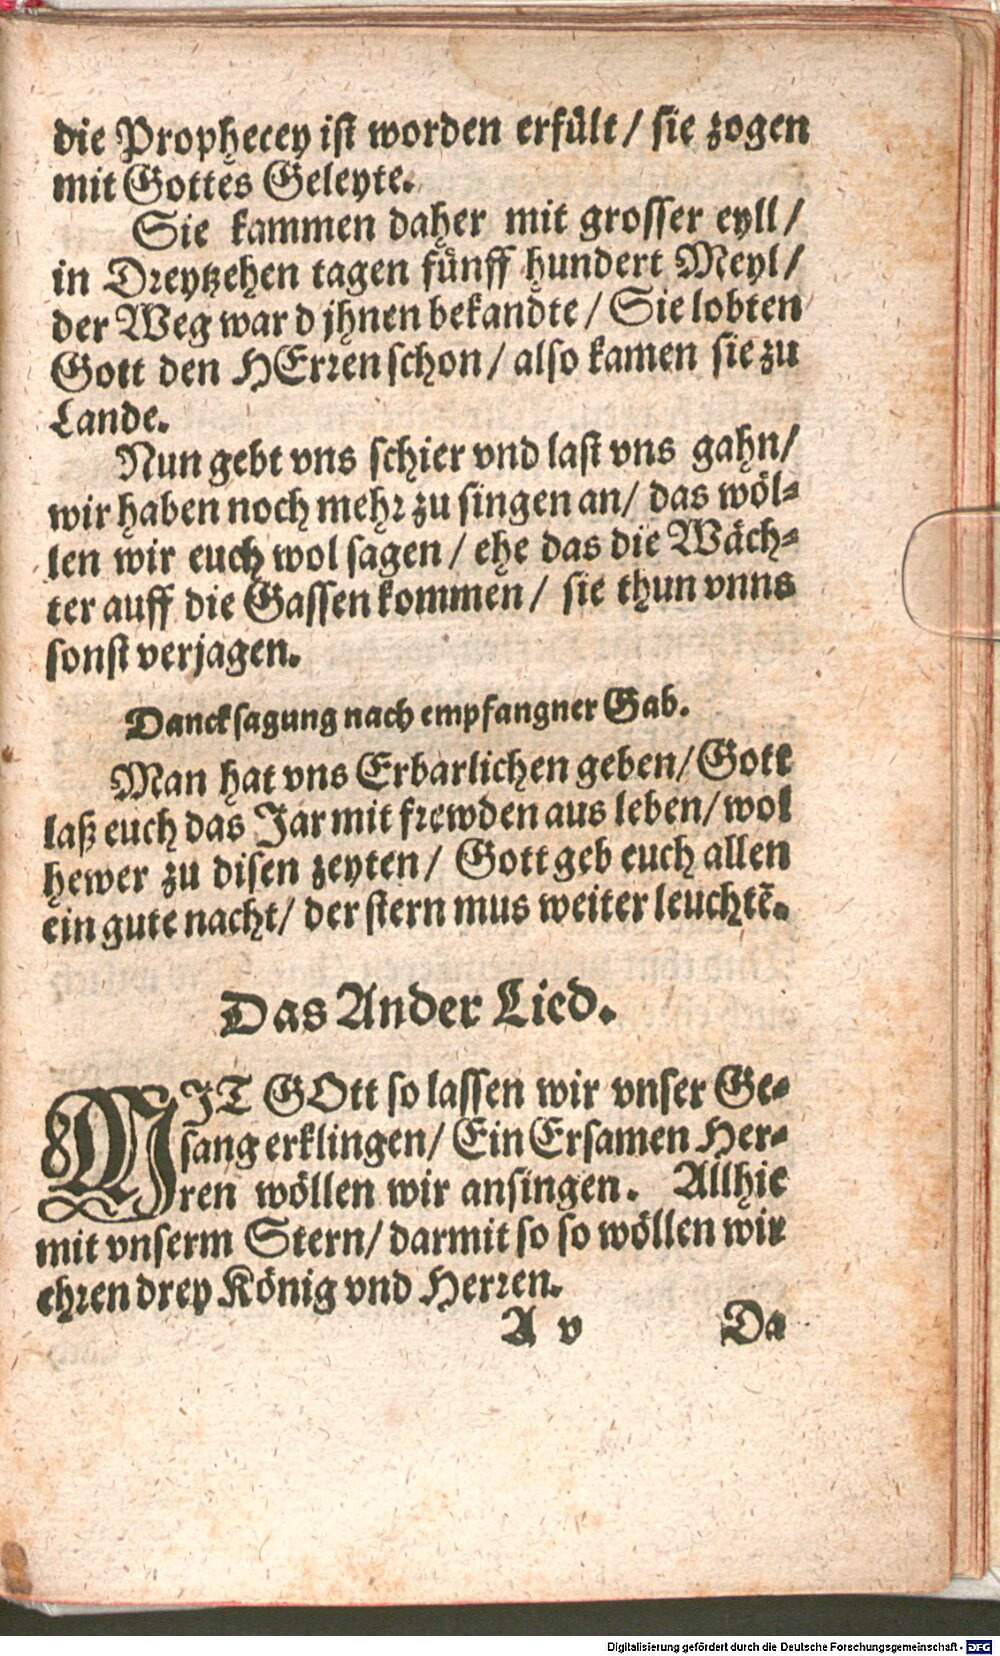 die Prophecey ist worden erfült / sie zogen
mit Gottes Geleyte.
Sie kammen daher mit grosser eyll /
in Dreytzehen tagen fünff hundert Meyl /
der Weg war d jhnen bekandte / Sie lobten
Gott den HErren schon / also kamen sie zu
Lande.
Nun gebt vns schier vnd last vns gahn /
wir haben noch mehr zu singen an / das wöl-
len wir euch wol sagen / ehe das die Wäch-
ter auff die Gassen kommen / sie thun vnns
sonst verjagen.
Dancksagung nach empfangner Gab.
Man hat vns Erbarlichen geben / Gott
laß euch das Jar mit frewden aus leben / wol
hewer zu disen zeyten / Gott geb euch allen
ein gute nacht / der stern mus weiter leuchtē.
Das Ander Lied.
MIT GOtt so lassen wir vnser Ge-
sang erklingen / Ein Ersamen Her-
ren wöllen wir ansingen. Allhie
mit vnserm Stern / darmit so so wöllen wir
ehren drey König vnd Herren.
A v Da
Digitalisierung gefördert durch die Deutsche Forschungsgemeinschaft - DFG